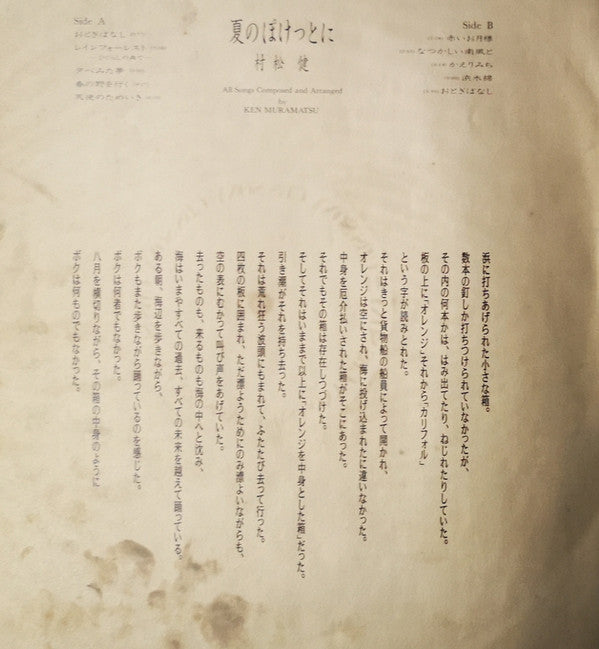 Side A
おとぎばなし
レインフォーレスト
夕べみた夢
春の野を行く
天使のためいき
夏のぽけっとに
村松 健
All Songs Composed and Arranged
by
KEN MURAMATSU
Side B
赤いお月様
なつかしい南風と
かえりみち
流木槽
おとぎばなし
浜に打ちあげられた小さな箱。
数本の釘しか打ちつけられていなかったが、
その内の何本かは、はみ出てたり、ねじれたりしていた。
板の上に「オレンジ」それから「カリフォル」
という字が読みとれた。
それはきっと貨物船の船員によって開かれ、
オレンジは空にされ、海に投げ込まれたに違いなかった。
中身を厄介払いされた箱がそこにあった。
それでもその箱は存在しつづけた。
そしてそれはいままで以上に「オレンジを中身とした箱」だった。
引き潮がそれを持ち去った。
それは荒れ狂う波頭にもまれて、ふたたび去って行った。
四枚の板に囲まれ、ただ漂ようためにのみ漂よいながらも、
空の表にむかって叫び声をあげていた。
去ったものも、来るものも海の中へと沈み、
海はいまやすべての過去、すべての未来を越えて踊っている。
ある朝、海辺を歩きながら、
ボクもまた歩きながら踊っているのを感じた。
ボクは何者でもなかった。
八月を横切りながら、その箱の中身のように
ボクは何ものでもなかった。